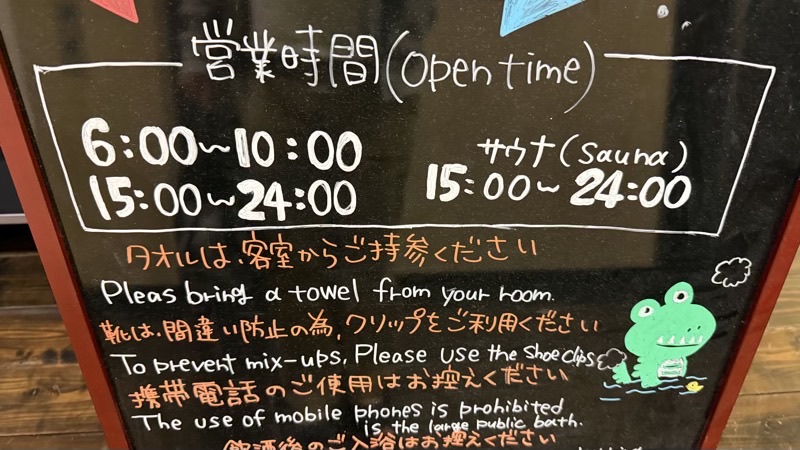 営業時間(Open time)
6:00~10:00
15:00~24:00
サウナ(sauna)
15:00~24:00
タオルは、客室からご持参ください
Pleas bring a towel from your room.
靴は、間違い防止の為、クリップをご利用ください
To prevent mix-ups, Please use the shoe clips
携帯電話のご使用はお控えください
The use of mobile phones is prohibited
is the large public bath.
飲酒後のご入浴はお控えください